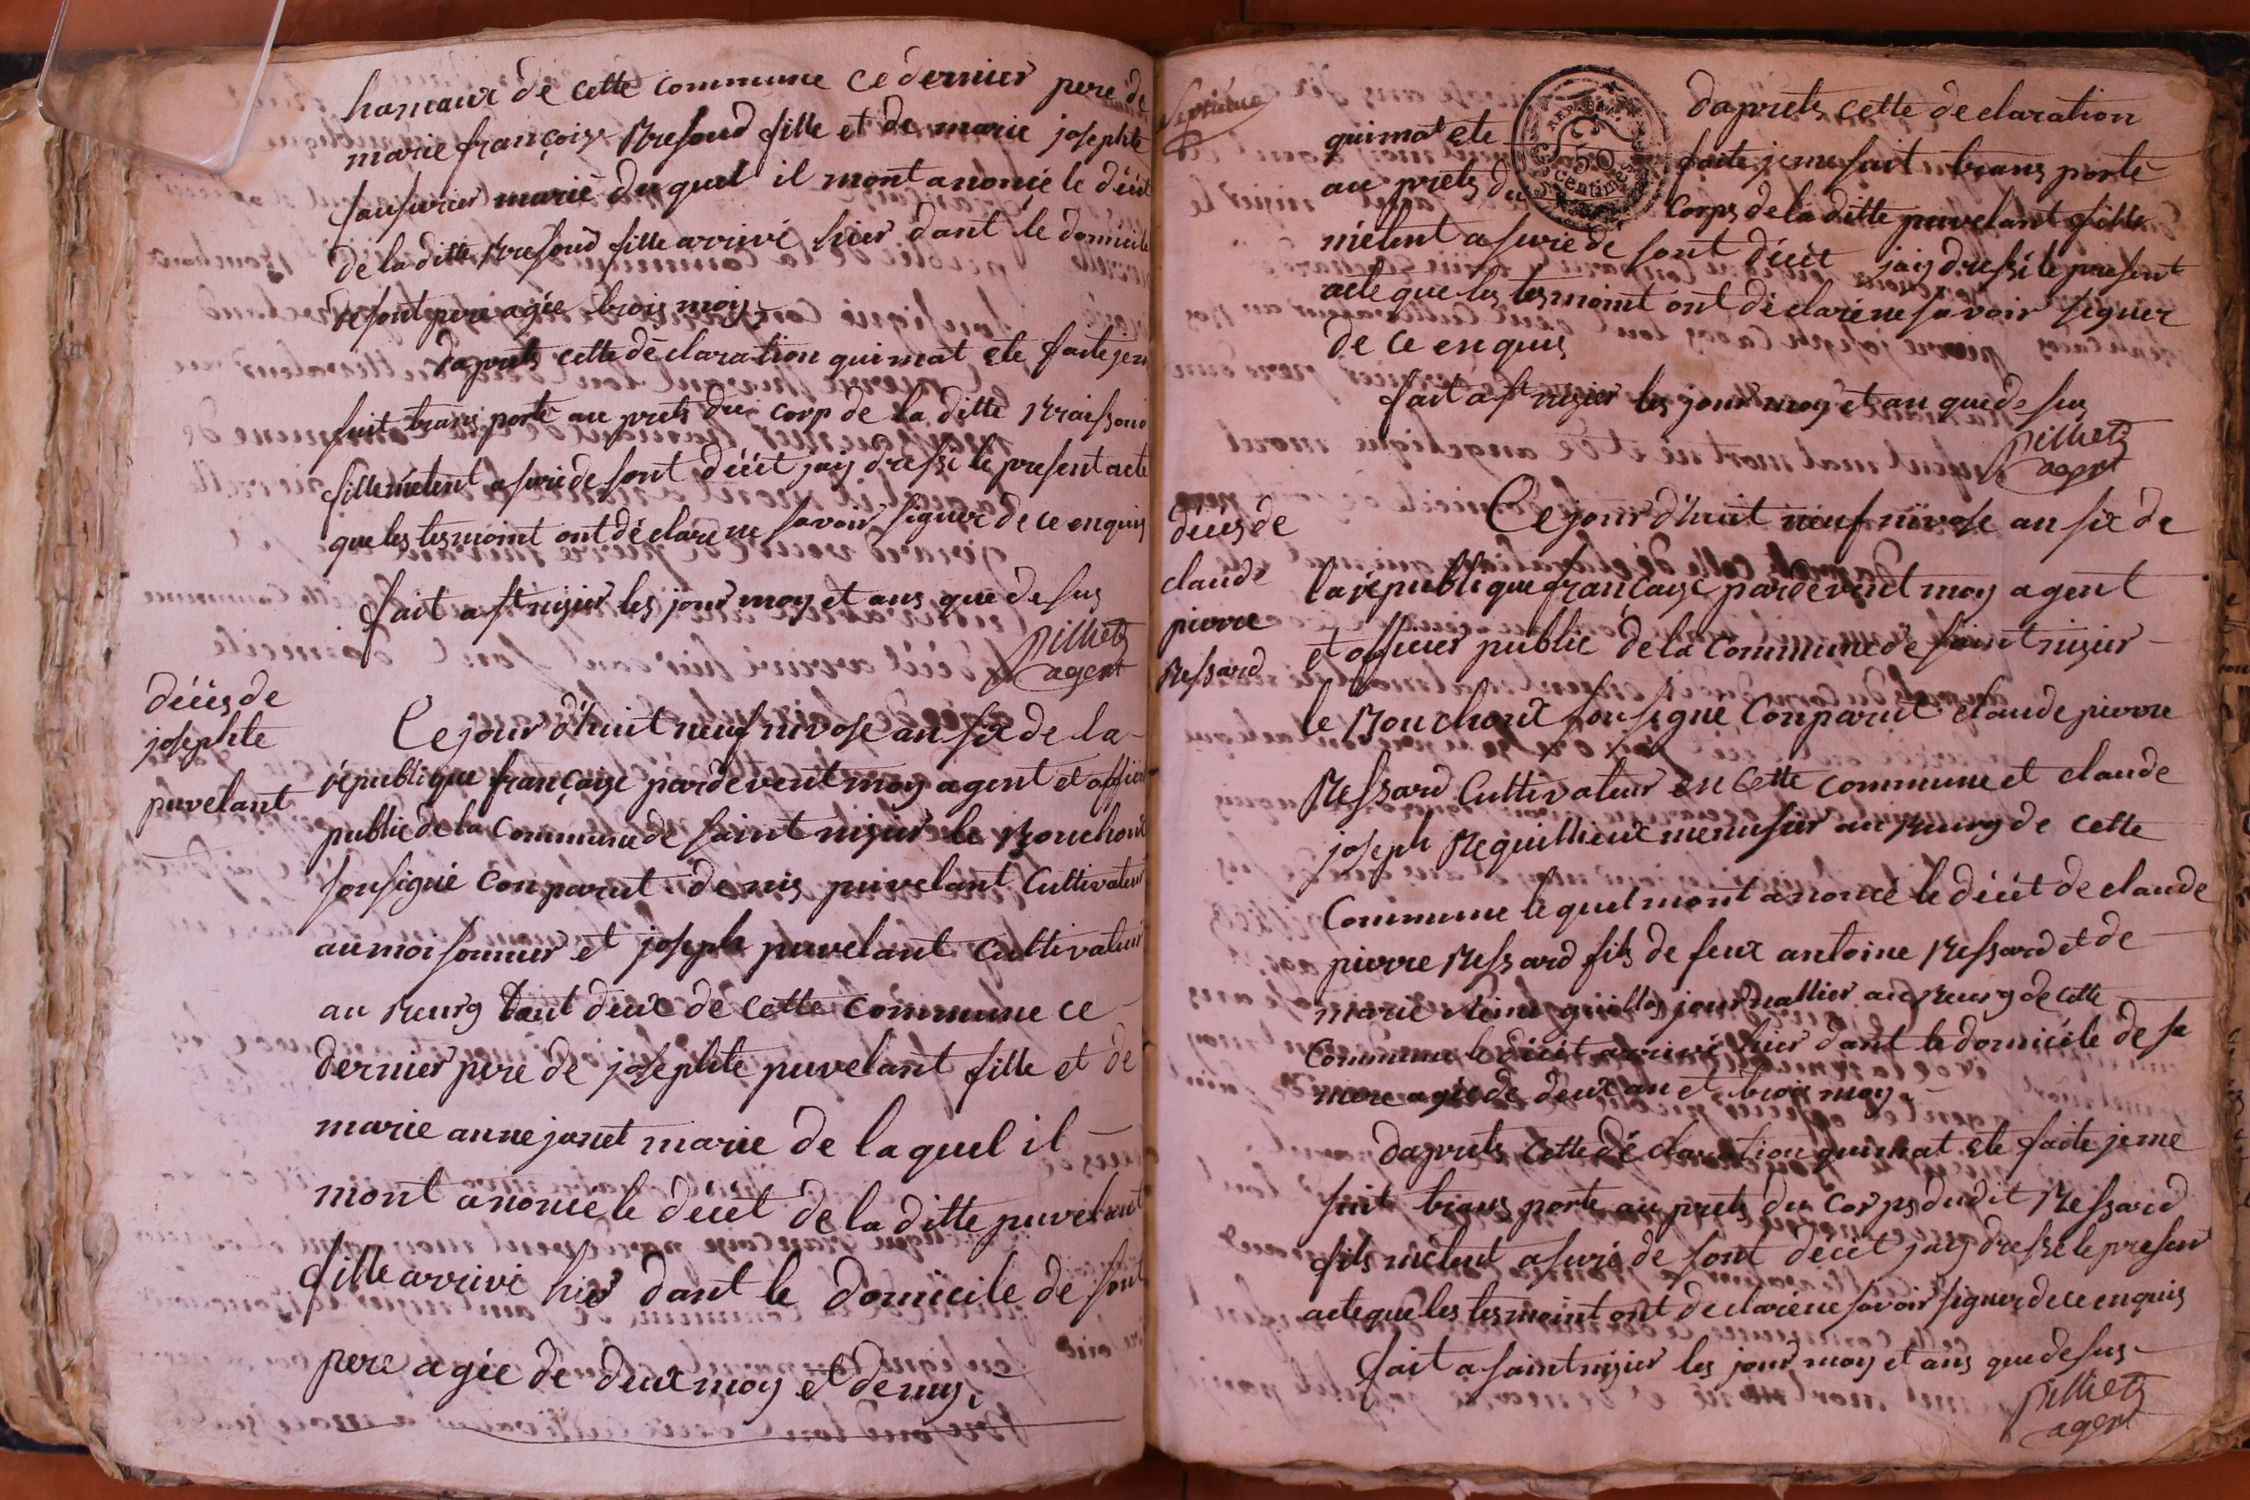 hameaux de cette commune ce dernier pere de
marie françoise Bresoud fille et de marie josephte
saufurier marié duquel il mont anoncé le décét
de la ditte Bresoud fille arrivé hier dant le domicile
de sont pere agée trois moys
daprets cette déclaration qui mat ete faite je me
suit trans porté au prets du corp de la ditte Braissoud
fille m'etent asuré de sont décét jay dressé le present acte
que les tesmoint ont déclaré ne savoir signer de ce enquis
fait a st nizier les jour moy et ans que desus
pilliet
agent
décés de
josephte
puvelant
Ce jour d'huit neuf nivose an six de la
république françaize pardevent moy agent et officier
public de la commune de saint nizier le Bouchoux
sousigné conparut denis puvelant cultivateur
au moisonnier et joseph puvelant cultivateur
au Bourg tout deux de cette commune ce
dernier pere de josephte puvelant fille et de
marie anne janet marie de laquel il
mont anoncé le décét de la ditte puvelant
fille arrivé hier dant le domicile de sont
pere agée de deux moy et demy
septième
daprets cette declaration
qui mat ete faite je me suit trans porté
au prets du corps de la ditte puvelant fille
m'etent asuré de sont décét jay dressé le present
acte que les tesmoint ont déclaré ne savoir signer
de ce enquis
REP. FRA.
50
centimes
fait a st nizier les jour moy et an que desus
pilliet
agent
décés de
claude
pierre
Bessard
Ce jour d'huit neuf nivose an six de
la république françaize pardevent moy agent
et officier public de la commune de saint nizier
le Bouchoux sousigné conparut claude pierre
Bessard cultivateur en cette commune et claude
joseph Reguillieux menusier au Bourg de cette
commune lequel mont anoncé le décét de claude
pierre Bessard fils de feux antoine Bessard et de
marie guillot journallier au Bourg de cette
commune le décét arrivé hier dant le domicile de sa
mere agée de deux an et trois moy
daprets cette déclaration qui mat ete faite je me
suit trans porté au prets du corps dudit Bessard
fils m'etent asuré de sont decét jay dressé le present
acte que les tesmoint ont declaré ne savoir signer de ce enquis
fait a saint nizier les jour moy et ans que desus
pilliet
agent